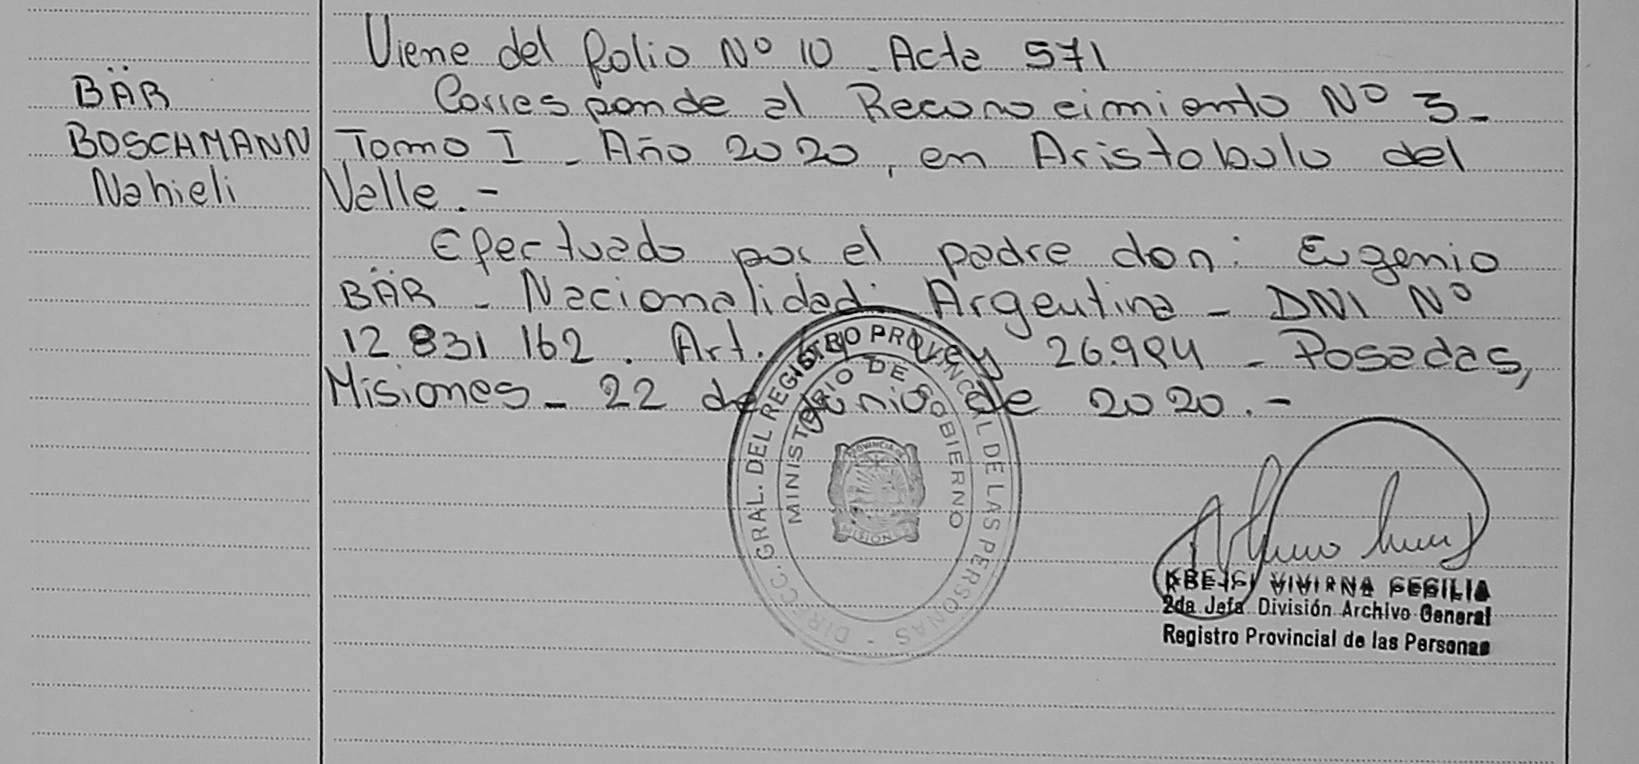 Viene del folio Nº 10 - Acta 571
BÄR
Corresponde al Reconocimiento Nº 3 -
BOSCHMANN
Tomo I - Año 2020, en Aristobulo del
Nahieli
Valle. -
Efectuado por el padre don: Eugenio
BÄR - Nacionalidad: Argentina - DNI Nº
12 831 162. Art. Ley 26.994 - Posadas,
Misiones - 22 de Junio de 2020. -
DIRECC. GRAL. DEL REGISTRO PROVINCIAL DE LAS PERSONAS -
MINISTERIO DE GOBIERNO
PROVINCIA
MISIONES
VIVIANA CECILIA
2da Jefa División Archivo General
Registro Provincial de las Personas